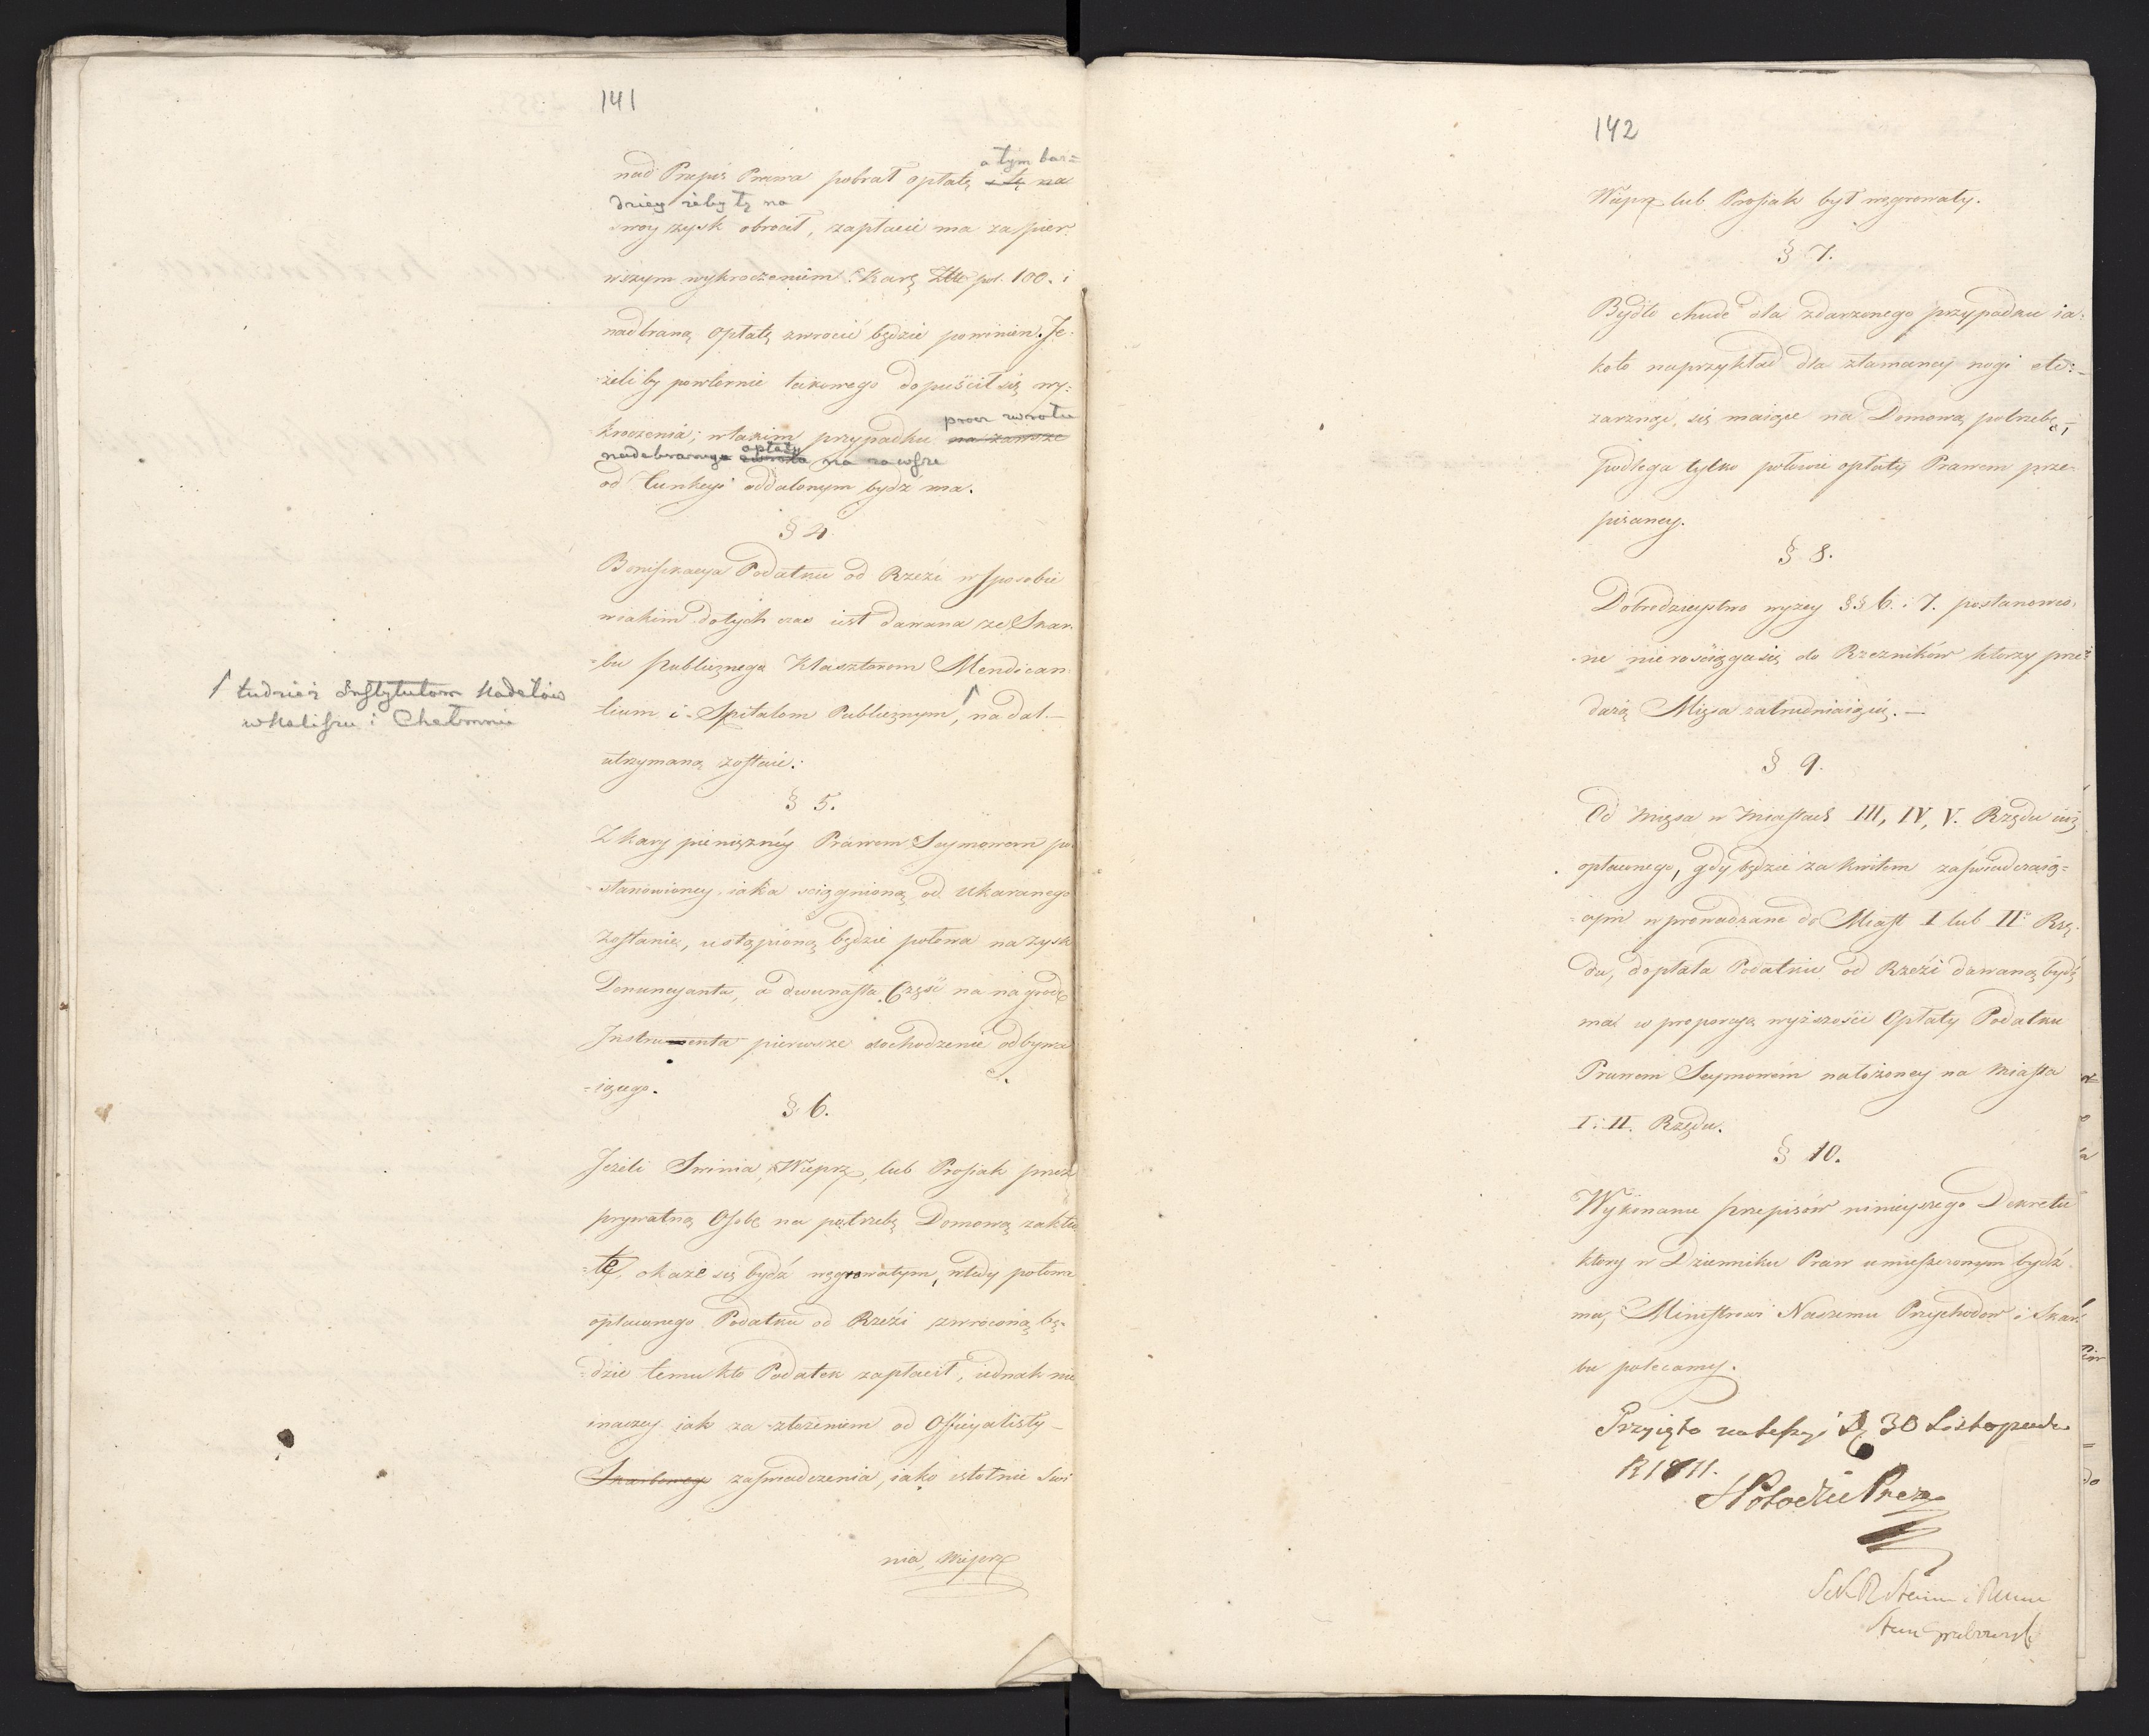 141
a tym bar=
nad Przepis Prawa pobrał opłatę a tę na
dziey żeby tę na
swoy zysk obrocił, zapłacić ma za pier
wszym wykroczeniem Karę Złł pol. 100. i
nadbraną Opłatę zwrocić będzie powinien. Je-
żeliby powtornie takowego dopuścił się wy=
proez zwrotu
kroczenia; w takim przypadku na zawsze
nadebranego zwrotu opłaty na zawsze
od funkcyi oddalonym bydź ma.
§ 4.
Bonifikacya Podatku od Rzezi w sposobie
w iakim dotych czas iest dawana ze Skar-
=bu publicznego Klasztorom Mendican
tium i Spitalom Publicznym, na dal
utrzymaną zostaie.
/ tudzież Instytutom Kadetów
w Kaliszu i Chełmnie
§ 5.
Z kary pieniężnéy Prawem Seymowem po
stanowioney iaka ściągnioną od Ukaranego
zostanie, ustąpioną będzie połowa na zysk
Denuncyanta, a dwunasta Część na nagrodę
Instrumenta pierwsze dochodzenie odbywa
=iącego.
§ 6.
Jeżeli Swinia, Wieprz, lub Prosiak przez
prywatną Osobę na potrzebę Domową zakłu
tę, okaże się bydź węgrowatym, wtedy połowa
opłaconego Podatku od Rzezi zwroconą bę-
=dzie temu kto Podatek zapłacił, iednak nie
inaczey iak za złożeniem od Officyalisty
Skarbowego zaświadczenia, iako istotnie Swi
nia, Wieprz
142
Wieprz lub Prosiak był węgrowaty.
§ 7.
Bydło chude dla zdarzonego przypadku ia-
koto naprzykład dla złamaney nogi etc:
zarznąć się maiące na Domową potrzebę,
podlega tylko połowie opłaty Prawem prze
pisaney.
§ 8.
Dobrodzieystwo wyżey §§ 6. i 7. postanowio-
ne nierościąga się do Rzezników ktorzy prze
dażą Mięsa zatrudniaią się.
§ 9.
Od Mięsa w Miastach III, IV, V. Rzędu iuż
opłaconego, gdy będzie za kwitem zaświadczaią=
=cym wprowadzane do Miast I lub II Rzę-
du, dopłata Podatku od Rzezi dawaną bydź
ma w proporcyą wyższości Opłaty Podatku
Prawem Seymowem nałożoney na Miasta
I. i II. Rzędu.
§ 10.
Wykonanie przepisów ninieyszego Dekretu
ktory w Dzienniku Praw umieszczonym bydź
ma, Ministrowi Naszemu Przychodow i Skar
bu polecamy.
Przyięto na Sessyi D. 30 Listopada
R 1811.
S Potocki Prez